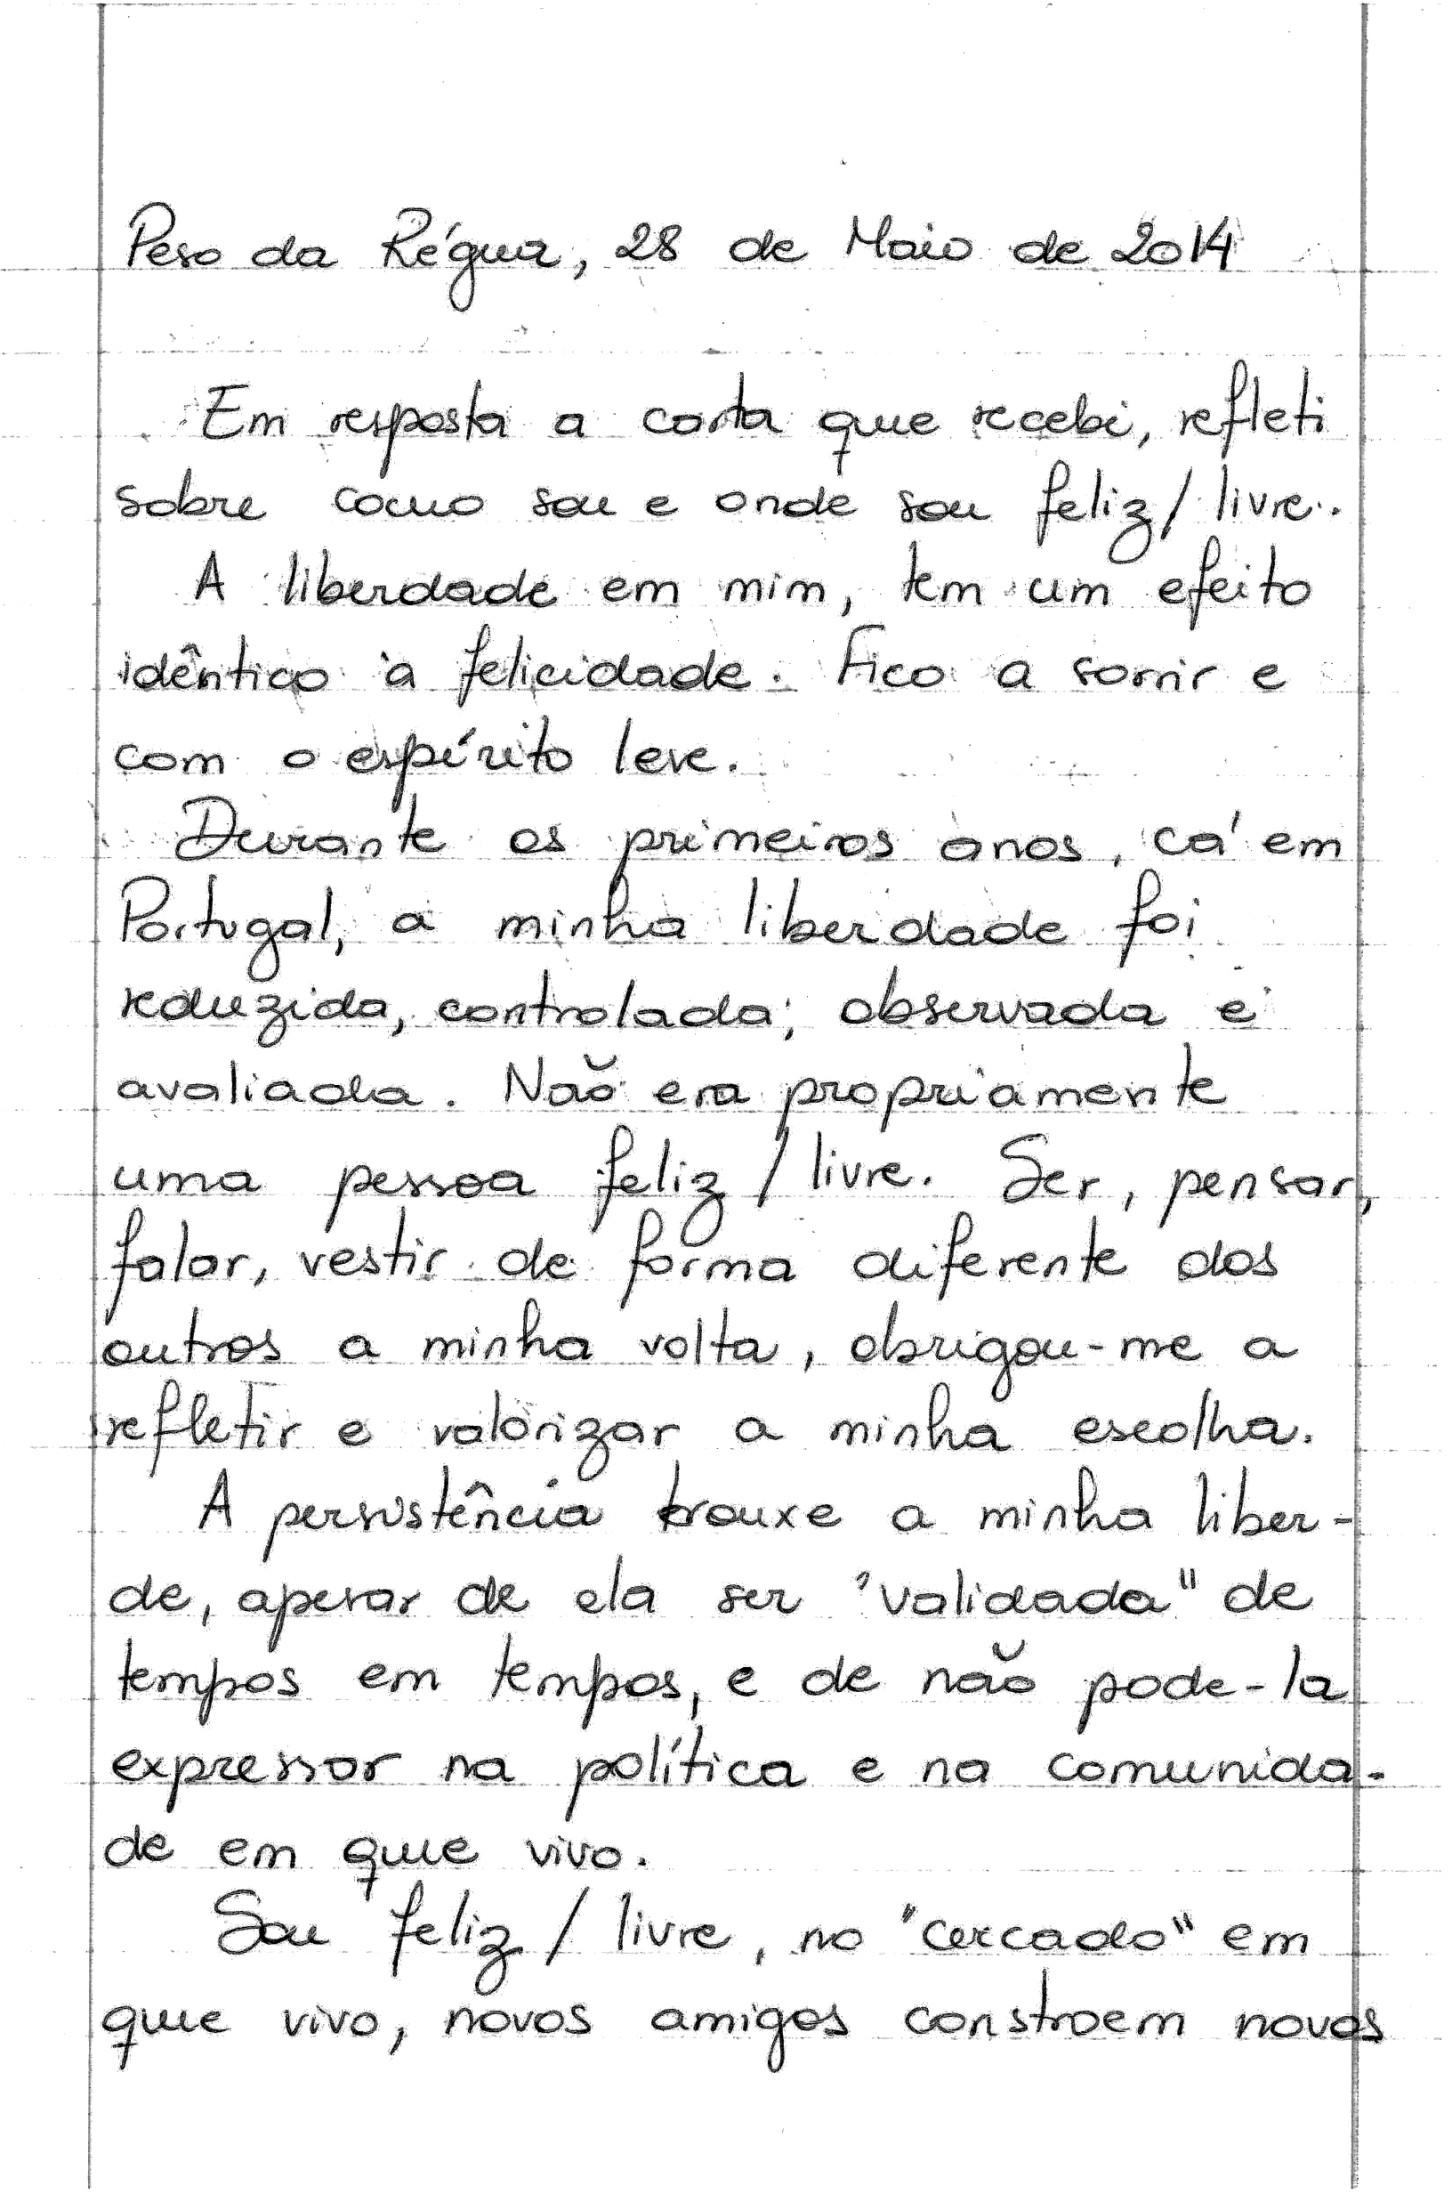 Peso da Régua, 28 de Maio de 2014
Em resposta a carta que recebi, refleti
sobre como sou e onde sou feliz/livre.
A liberdade em mim, tem um efeito
idêntico à felicidade. Fico a sorrir e
com o espírito leve.
Durante os primeiros anos, cá em
Portugal, a minha liberdade foi
reduzida, controlada, observada e
avaliada. Não era propriamente
uma pessoa feliz/livre. Ser, pensar,
falar, vestir de forma diferente dos
outros a minha volta, obrigou-me a
refletir e valorizar a minha escolha.
A persistência trouxe a minha liber-
de, apesar de ela ser "validada" de
tempos em tempos, e de não pode-la
expressar na política e na comunida-
de em que vivo.
Sou feliz/livre, no "cercado" em
que vivo, novos amigos constroem novos